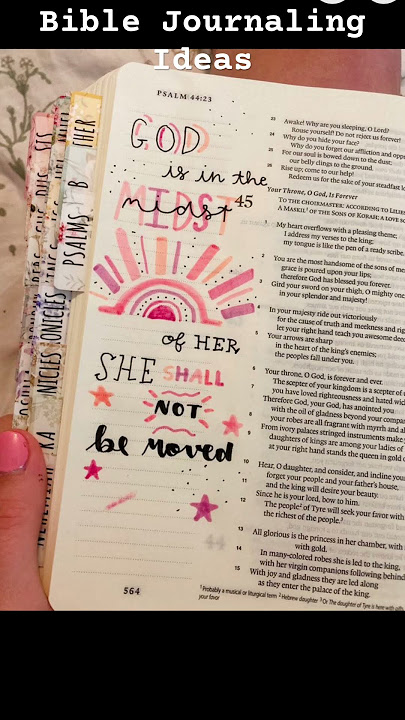 Bible Journaling
Ideas
PSALM 44:23
GOD
is in the
MIDST
midst
of HER
SHE SHALL
NOT
be moved
PSALMS B
HER
NICLES
23 Awake! Why are you sleeping, O Lord?
Rouse yourself! Do not reject us forever!
24 Why do you hide your face?
Why do you forget our affliction and
25 For our soul is bowed down to the dust;
our belly clings to the ground.
26 Rise up; come to our help!
Redeem us for the sake of your steadfast
Your Throne, O God, Is Forever
45 TO THE CHOIRMASTER: ACCORDING TO
A MASKIL OF THE SONS OF KORAH; A LOVE
1 My heart overflows with a pleasing theme;
I address my verses to the king;
my tongue is like the pen of a ready scribe.
2 You are the most handsome of the sons of
grace is poured upon your lips;
therefore God has blessed you forever.
3 Gird your sword on your thigh, O mighty one,
in your splendor and majesty!
4 In your majesty ride out victoriously
for the cause of truth and meekness and
let your right hand teach you awesome
5 Your arrows are sharp
in the heart of the king's enemies;
the peoples fall under you.
6 Your throne, O God, is forever and ever.
The scepter of your kingdom is a scepter of
7 you have loved righteousness and hated
Therefore God, your God, has anointed you
with the oil of gladness beyond your
8 your robes are all fragrant with myrrh and
From ivory palaces stringed instruments make
9 daughters of kings are among your ladies of
at your right hand stands the queen in gold
10 Hear, O daughter, and consider, and incline your
forget your people and your father's house,
11 and the king will desire your beauty.
Since he is your lord, bow to him.
12 The people of Tyre will seek your favor with
the richest of the people.
13 All glorious is the princess in her chamber, with
with gold.
14 In many-colored robes she is led to the king,
with her virgin companions following behind
15 With joy and gladness they are led along
as they enter the palace of the king.
564
1 Probably a musical or liturgical term 2 Hebrew daughter 3 Or The daughter of Tyre is here with
your favor